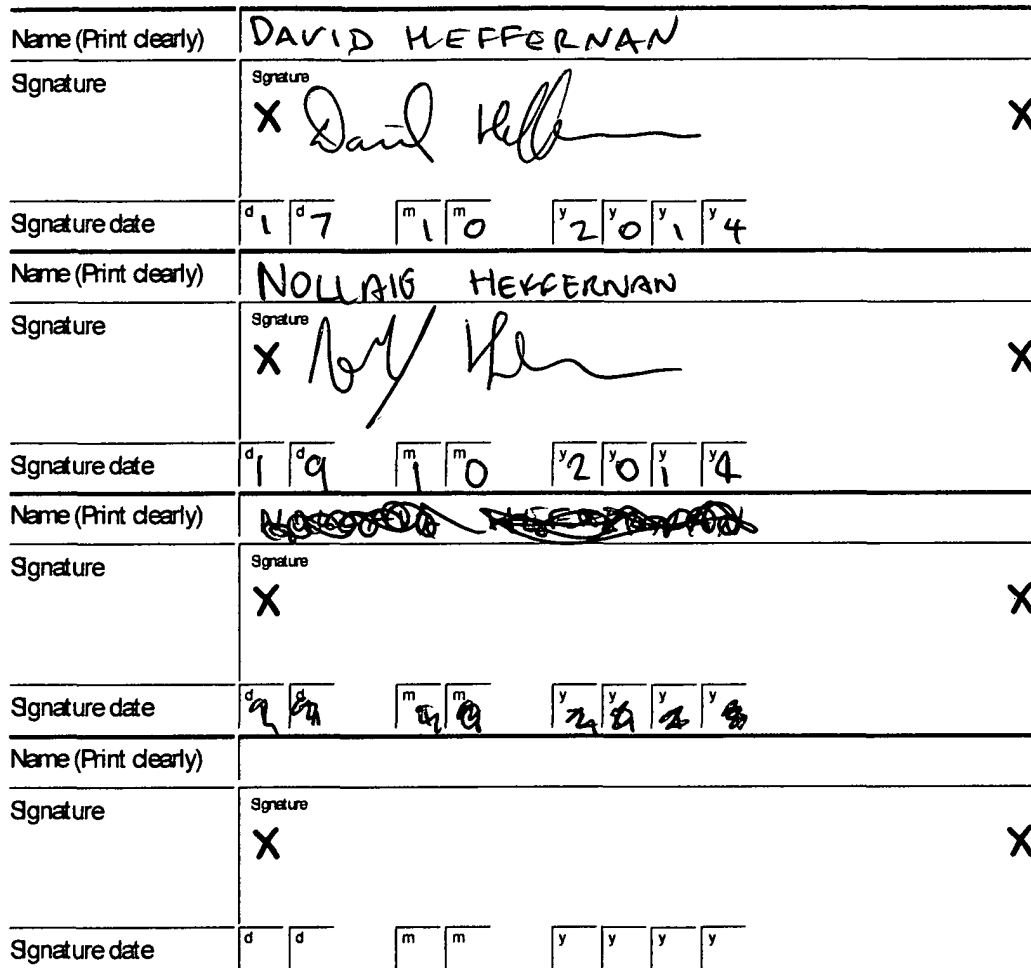 Name (Print clearly) DAVID HEFFERNAN
Signature Signature
X David Heffernan X
Signature date d 1 d 7 m 1 m 0 y 2 y 0 y 1 y 4
Name (Print clearly) NOLLAIG HEFFERNAN
Signature Signature
X X
Signature date d 1 d 9 m 1 m 0 y 2 y 0 y 1 y 4
Name (Print clearly)
Signature Signature
X X
Signature date d d m m y y y y
Name (Print clearly)
Signature Signature
X X
Signature date d d m m y y y y